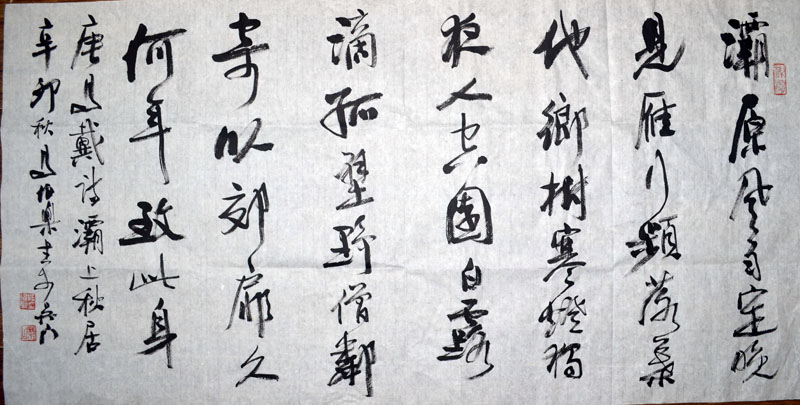 灞原風雨定晚
見雁行頻落葉
他鄉樹寒燈獨
夜人空園白露
滴孤壁野僧鄰
寄臥郊扉久
何年致此身
唐馬戴詩灞上秋居
辛卯秋馬伯樂書於